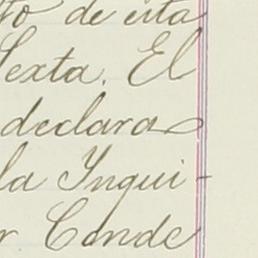 to de esta
Sexta. El
declara
la Inqui-
r Conde